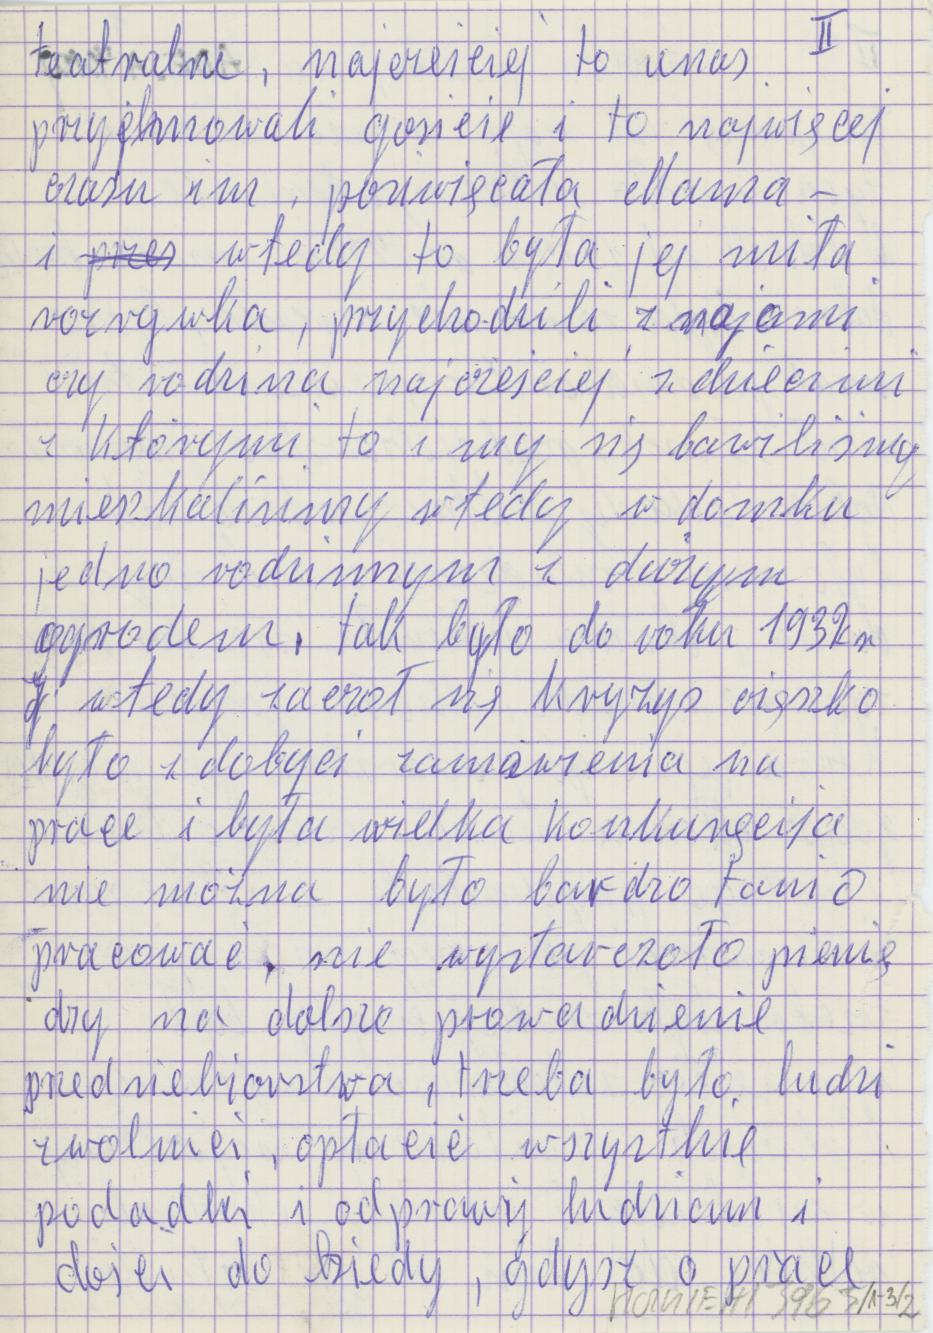 II
teatralne, najcześciej to unas
przyjmowali goście i to najwięcej
czasu im, poświęcała Mama –
i przes wtedy to była jej miła
rozrywka, przychodzili znajomi
czy rodzina najcześciej z dziećmi
z którymi to i my się bawiliśmy
mieszkaliśmy wtedy w domku
jedno rodzinnym z dużym
ogrodem, tak było do roku 1932r
i wtedy zaczoł się kryzys ciężko
było zdobyci zamówienia na
prace i była wielka konkuręcija
nie można było bardzo tanio
pracować, nie wystarczoło pienię
dzy na dobsze prowadzienie
przedsiebiorstwa, trzeba było ludzi
zwolnici, opłacić wszystkie
podadki i odprawy ludziom i
dojść do biedy, gdysz o prace
3963/1-3/2